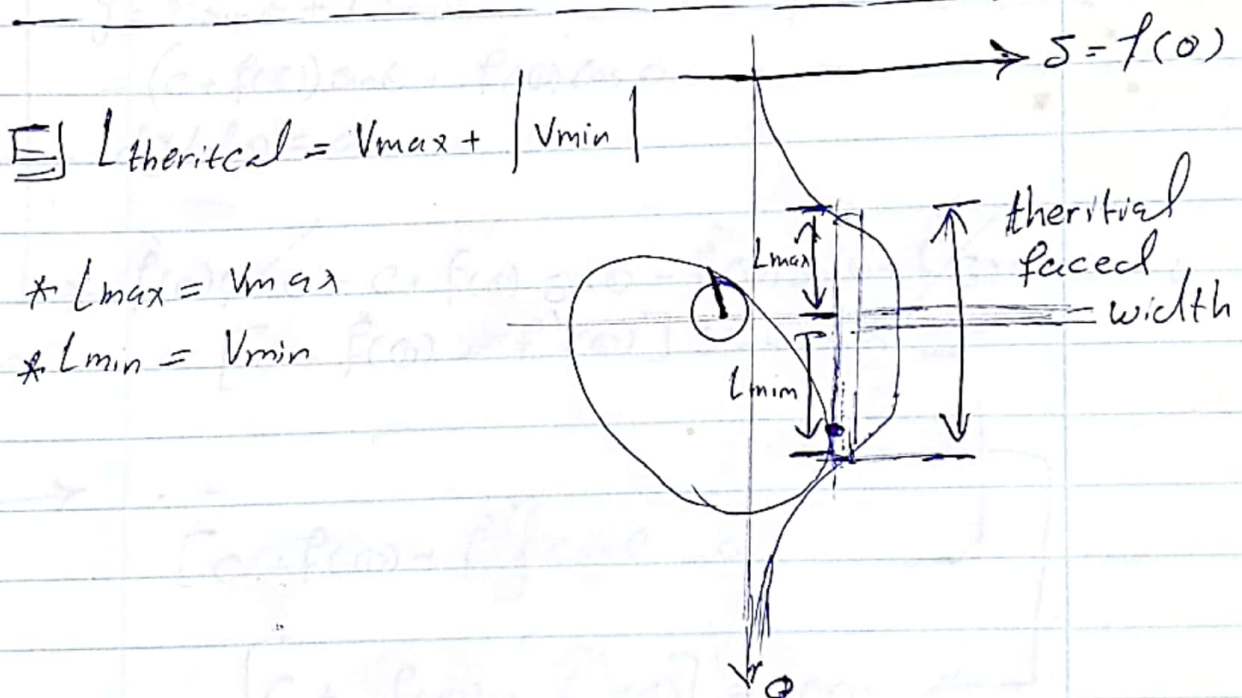 δ = f(θ)
E] L theritcal = Vmax + | Vmin |
* Lmax = Vmax
* Lmin = Vmin
Lmax
Lmim
theritial
faced
width
θ